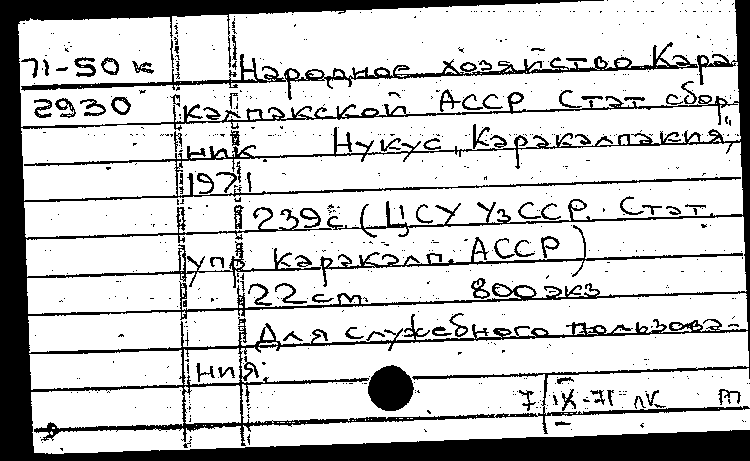 71-50 к Народное хозяйство Кара
2930 калпакской АССР Стат. сбор-
ник. Нукус, „Каракалпакия",
1971
239с (ЦСУ УзССР. Стат.
упр. Каракалп. АССР)
22 cm. 800 экз
Для служебного пользова-
ния.
7/IX-71 лк